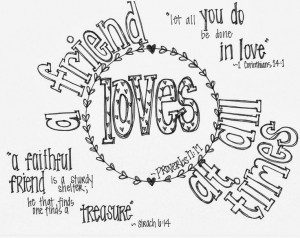 "let all you do
be done
in love"
~1 Corinthians 14:1
a friend
loves
at all
times
~Proverbs 17:17
"a faithful
friend is a sturdy
shelter;
he that finds
one finds a
treasure"
~Sirach 6:14